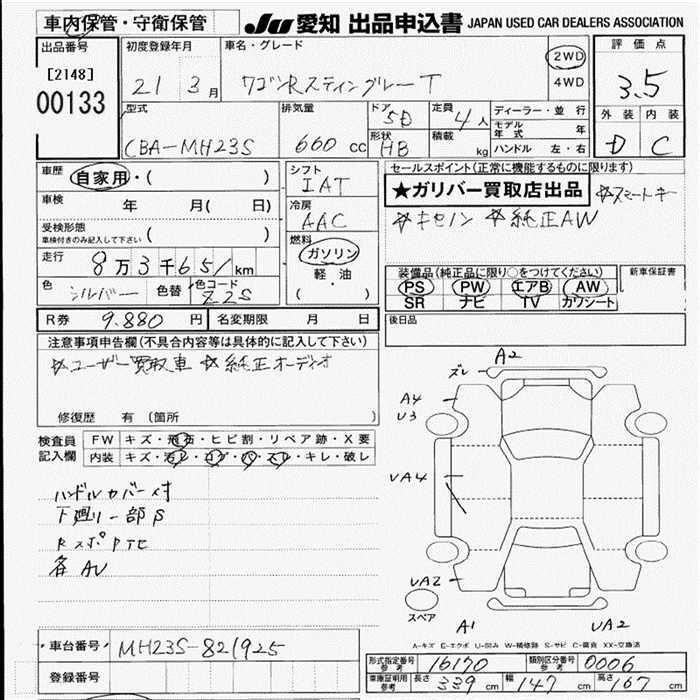 車内保管・守衛保管
JU 愛知 出品申込書 JAPAN USED CAR DEALERS ASSOCIATION
出品番号 [2148] 00133
初度登録年月 21 3月
車名・グレード ワゴンRスティングレーT
2WD
4WD
評価点 3.5
外装 内装
D C
型式 CBA-MH23S
排気量 660 cc
ドア 5D
形状 HB
定員 4人
積載 kg
ディーラー・並行
モデル年式 年
ハンドル 左・右
車歴 自家用・( )
車検 年 月( 日)
受検形態 ( )
車検付きのみ記入して下さい
走行 8万3千651km
色 シルバー 色替 色コード Z2S
シフト IAT
冷房 AAC
燃料
ガソリン
軽・油
( )
セールスポイント(正常に機能するものに限ります)
★ガリバー買取店出品 ☆スマートキー
☆キセノン ☆純正AW
装備品(純正品に限り○をつけてください)
PS PW エアB AW
SR ナビ TV カワシート
新車保証書
後日品
R券 9.880円 名変期限 月 日
注意事項申告欄(不具合内容等は具体的に記入して下さい)
☆ユーザー買取車 ☆純正オーディオ
修復歴 有(箇所 )
検査員記入欄
FW キズ・飛石・ヒビ割・リペア跡・X要
内装 キズ・汚レ・コゲ・穴・スレ・キレ・破レ
ハンドルカバー付
下廻り一部S
各AU
ズレ A2
A4
U3
UA4
UA2
スペア
A1 UA2
A-キズ E-エクボ U-凹み W-補修跡 S-サビ C-腐食 XX-交換済
車台番号 MH23S-821925
登録番号
形式指定番号 参考 16170 類別区分番号 参考 0006
車庫証明用 参考 長さ 339cm 幅 147cm 高さ 167cm